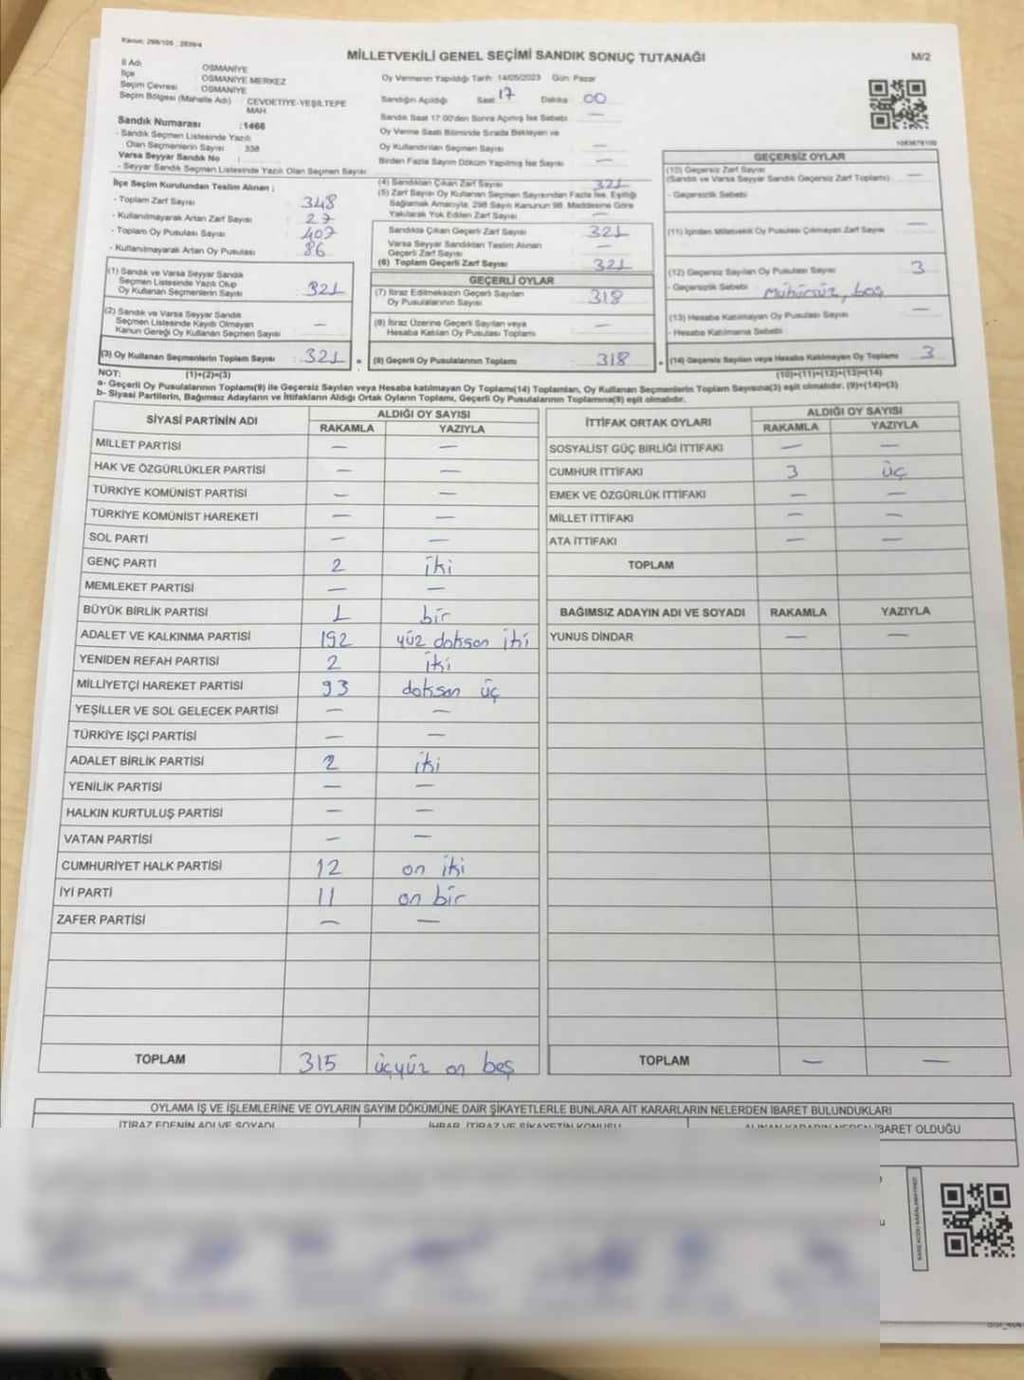 Kanun: 298/105 , 2839/4
MİLLETVEKİLİ GENEL SEÇİMİ SANDIK SONUÇ TUTANAĞI
M/2
İl Adı OSMANİYE
İlçe OSMANİYE MERKEZ
Seçim Çevresi OSMANİYE
Seçim Bölgesi (Mahalle Adı) CEVDETİYE-YEŞİLTEPE MAH
Sandık Numarası :1466
- Sandık Seçmen Listesinde Yazılı
Olan Seçmenlerin Sayısı 338
Varsa Seyyar Sandık No
- Seyyar Sandık Seçmen Listesinde Yazılı Olan Seçmen Sayısı
Oy Vermenin Yapıldığı Tarih 14/05/2023 Gün Pazar
Sandığın Açıldığı Saat 17 Dakika 00
Sandık Saat 17:00'den Sonra Açılmış İse Sebebi —
Oy Verme Saati Bitiminde Sırada Bekleyen ve
Oy Kullandırılan Seçmen Sayısı —
Birden Fazla Sayım Döküm Yapılmış İse Sayısı —
İlçe Seçim Kurulundan Teslim Alınan ;
- Toplam Zarf Sayısı 348
- Kullanılmayarak Artan Zarf Sayısı 27
- Toplam Oy Pusulası Sayısı 407
- Kullanılmayarak Artan Oy Pusulası 86
(1) Sandık ve Varsa Seyyar Sandık
Seçmen Listesinde Yazılı Olup
Oy Kullanan Seçmenlerin Sayısı 321
(2) Sandık ve Varsa Seyyar Sandık
Seçmen Listesinde Kayıtlı Olmayan
Kanun Gereği Oy Kullanan Seçmen Sayısı —
(3) Oy Kullanan Seçmenlerin Toplam Sayısı 321
(4) Sandıktan Çıkan Zarf Sayısı 321
(5) Zarf Sayısı Oy Kullanan Seçmen Sayısından Fazla İse, Eşitliği
Sağlamak Amacıyla, 298 Sayılı Kanunun 98. Maddesine Göre
Yakılarak Yok Edilen Zarf Sayısı —
Sandıkta Çıkan Geçerli Zarf Sayısı 321
Varsa Seyyar Sandıktan Teslim Alınan
Geçerli Zarf Sayısı —
(6) Toplam Geçerli Zarf Sayısı 321
GEÇERLİ OYLAR
(7) İtiraz Edilmeksizin Geçerli Sayılan
Oy Pusulalarının Sayısı 318
(8) İtiraz Üzerine Geçerli Sayılan veya
Hesaba Katılan Oy Pusulası Toplamı —
(9) Geçerli Oy Pusulalarının Toplamı 318
GEÇERSİZ OYLAR
(10) Geçersiz Zarf Sayısı
(Sandık ve Varsa Seyyar Sandık Geçersiz Zarf Toplamı) —
- Geçersizlik Sebebi
(11) İçinden Milletvekili Oy Pusulası Çıkmayan Zarf Sayısı —
(12) Geçersiz Sayılan Oy Pusulası Sayısı 3
- Geçersizlik Sebebi Mühürsüz, boş
(13) Hesaba Katılmayan Oy Pusulası Sayısı —
- Hesaba Katılmama Sebebi
(14) Geçersiz Sayılan veya Hesaba Katılmayan Oy Toplamı 3
NOT: (1)+(2)=(3) (10)+(11)+(12)+(13)=(14)
a- Geçerli Oy Pusulalarının Toplamı(9) ile Geçersiz Sayılan veya Hesaba katılmayan Oy Toplamı(14) Toplamları, Oy Kullanan Seçmenlerin Toplam Sayısına(3) eşit olmalıdır. (9)+(14)=(3)
b- Siyasi Partilerin, Bağımsız Adayların ve İttifakların Aldığı Ortak Oyların Toplamı, Geçerli Oy Pusulalarının Toplamına(9) eşit olmalıdır.
SİYASİ PARTİNİN ADI ALDIĞI OY SAYISI
RAKAMLA YAZIYLA
MİLLET PARTİSİ — —
HAK VE ÖZGÜRLÜKLER PARTİSİ — —
TÜRKİYE KOMÜNİST PARTİSİ — —
TÜRKİYE KOMÜNİST HAREKETİ — —
SOL PARTİ — —
GENÇ PARTİ 2 iki
MEMLEKET PARTİSİ — —
BÜYÜK BİRLİK PARTİSİ 1 bir
ADALET VE KALKINMA PARTİSİ 192 yüz doksan iki
YENİDEN REFAH PARTİSİ 2 iki
MİLLİYETÇİ HAREKET PARTİSİ 93 doksan üç
YEŞİLLER VE SOL GELECEK PARTİSİ — —
TÜRKİYE İŞÇİ PARTİSİ — —
ADALET BİRLİK PARTİSİ 2 iki
YENİLİK PARTİSİ — —
HALKIN KURTULUŞ PARTİSİ — —
VATAN PARTİSİ — —
CUMHURİYET HALK PARTİSİ 12 on iki
İYİ PARTİ 11 on bir
ZAFER PARTİSİ — —
TOPLAM 315 üçyüz on beş
İTTİFAK ORTAK OYLARI ALDIĞI OY SAYISI
RAKAMLA YAZIYLA
SOSYALİST GÜÇ BİRLİĞİ İTTİFAKI — —
CUMHUR İTTİFAKI 3 üç
EMEK VE ÖZGÜRLÜK İTTİFAKI — —
MİLLET İTTİFAKI — —
ATA İTTİFAKI — —
TOPLAM
BAĞIMSIZ ADAYIN ADI VE SOYADI RAKAMLA YAZIYLA
YUNUS DİNDAR — —
TOPLAM — —
OYLAMA İŞ VE İŞLEMLERİNE VE OYLARIN SAYIM DÖKÜMÜNE DAİR ŞİKAYETLERLE BUNLARA AİT KARARLARIN NELERDEN İBARET BULUNDUKLARI
İTİRAZ EDENİN ADI VE SOYADI İHBAR, İTİRAZ VE ŞİKAYETİN KONUSU ALINAN KARARIN NEDEN İBARET OLDUĞU